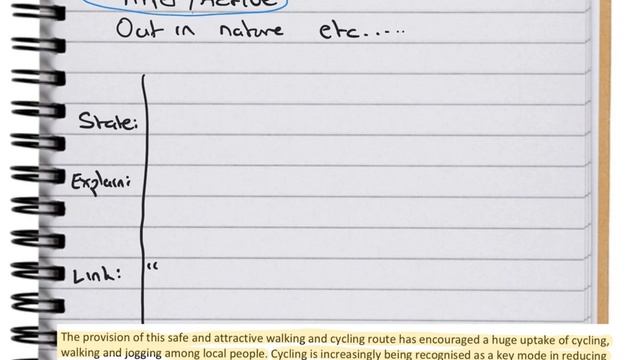 Out in nature etc.....
State:
Explain:
Link: "
The provision of this safe and attractive walking and cycling route has encouraged a huge uptake of cycling,
walking and jogging among local people. Cycling is increasingly being recognised as a key mode in reducing